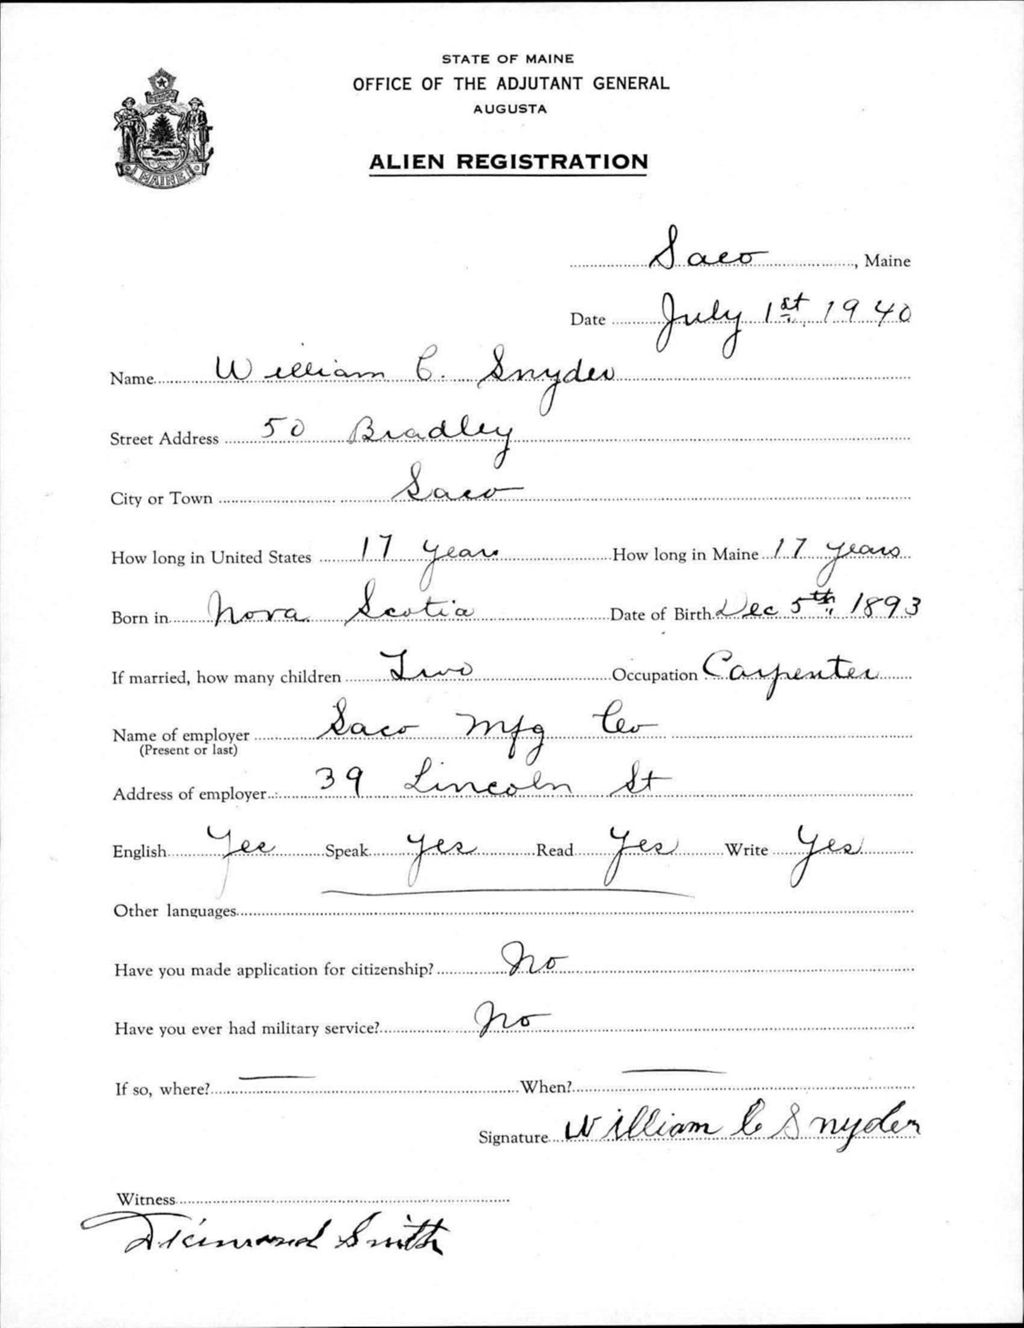 STATE OF MAINE
OFFICE OF THE ADJUTANT GENERAL
AUGUSTA
MAINE
ALIEN REGISTRATION
Saco, Maine
Date July 1st, 1940
Name William C. Snyder
Street Address 50 Bradley
City or Town Saco
How long in United States 17 years How long in Maine 17 years
Born in Nova Scotia Date of Birth Dec 5th, 1893
If married, how many children Two Occupation Carpenter
Name of employer Saco Mfg Co
(Present or last)
Address of employer 39 Lincoln St
English Yes Speak yes Read Yes Write Yes
Other languages
Have you made application for citizenship? No
Have you ever had military service? No
If so, where? — When? —
Signature William C Snyder
Witness
Smith